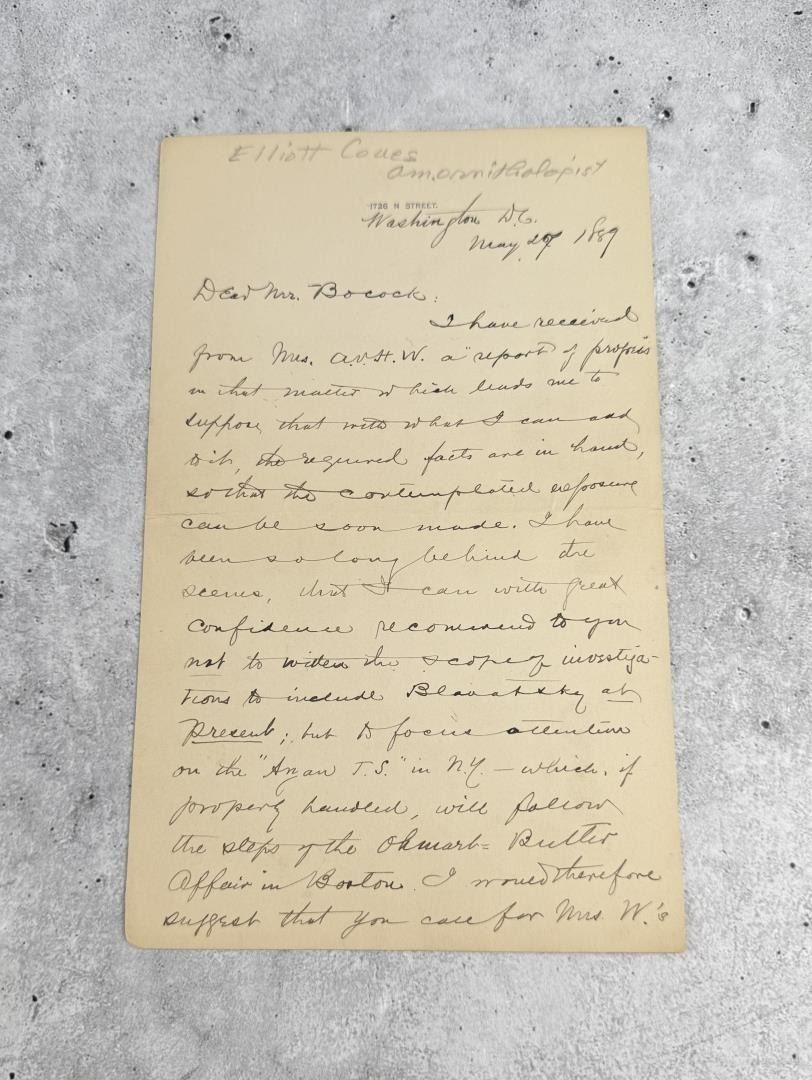 Elliott Coues
Am. ornithologist
1726 N STREET.
Washington D.C.
May 27 1889
Dear Mr. Bocock:
I have received
from Mrs. A.v.H.W. a "report of progress"
in that matter which leads me to
suppose, that with what I can add
to it, the required facts are in hand,
so that the contemplated exposure
can be soon made. I have
been so long behind the
scenes, that I can with great
confidence recommend to you
not to widen the scope of investiga-
tions to include Blavatsky at
present; but to focus attention
on the "Aryan T.S." in N.Y. — which, if
properly handled, will follow
the steps of the Ohmart= Butler
Affair in Boston. I would therefore
suggest that you call for Mrs. W.'s